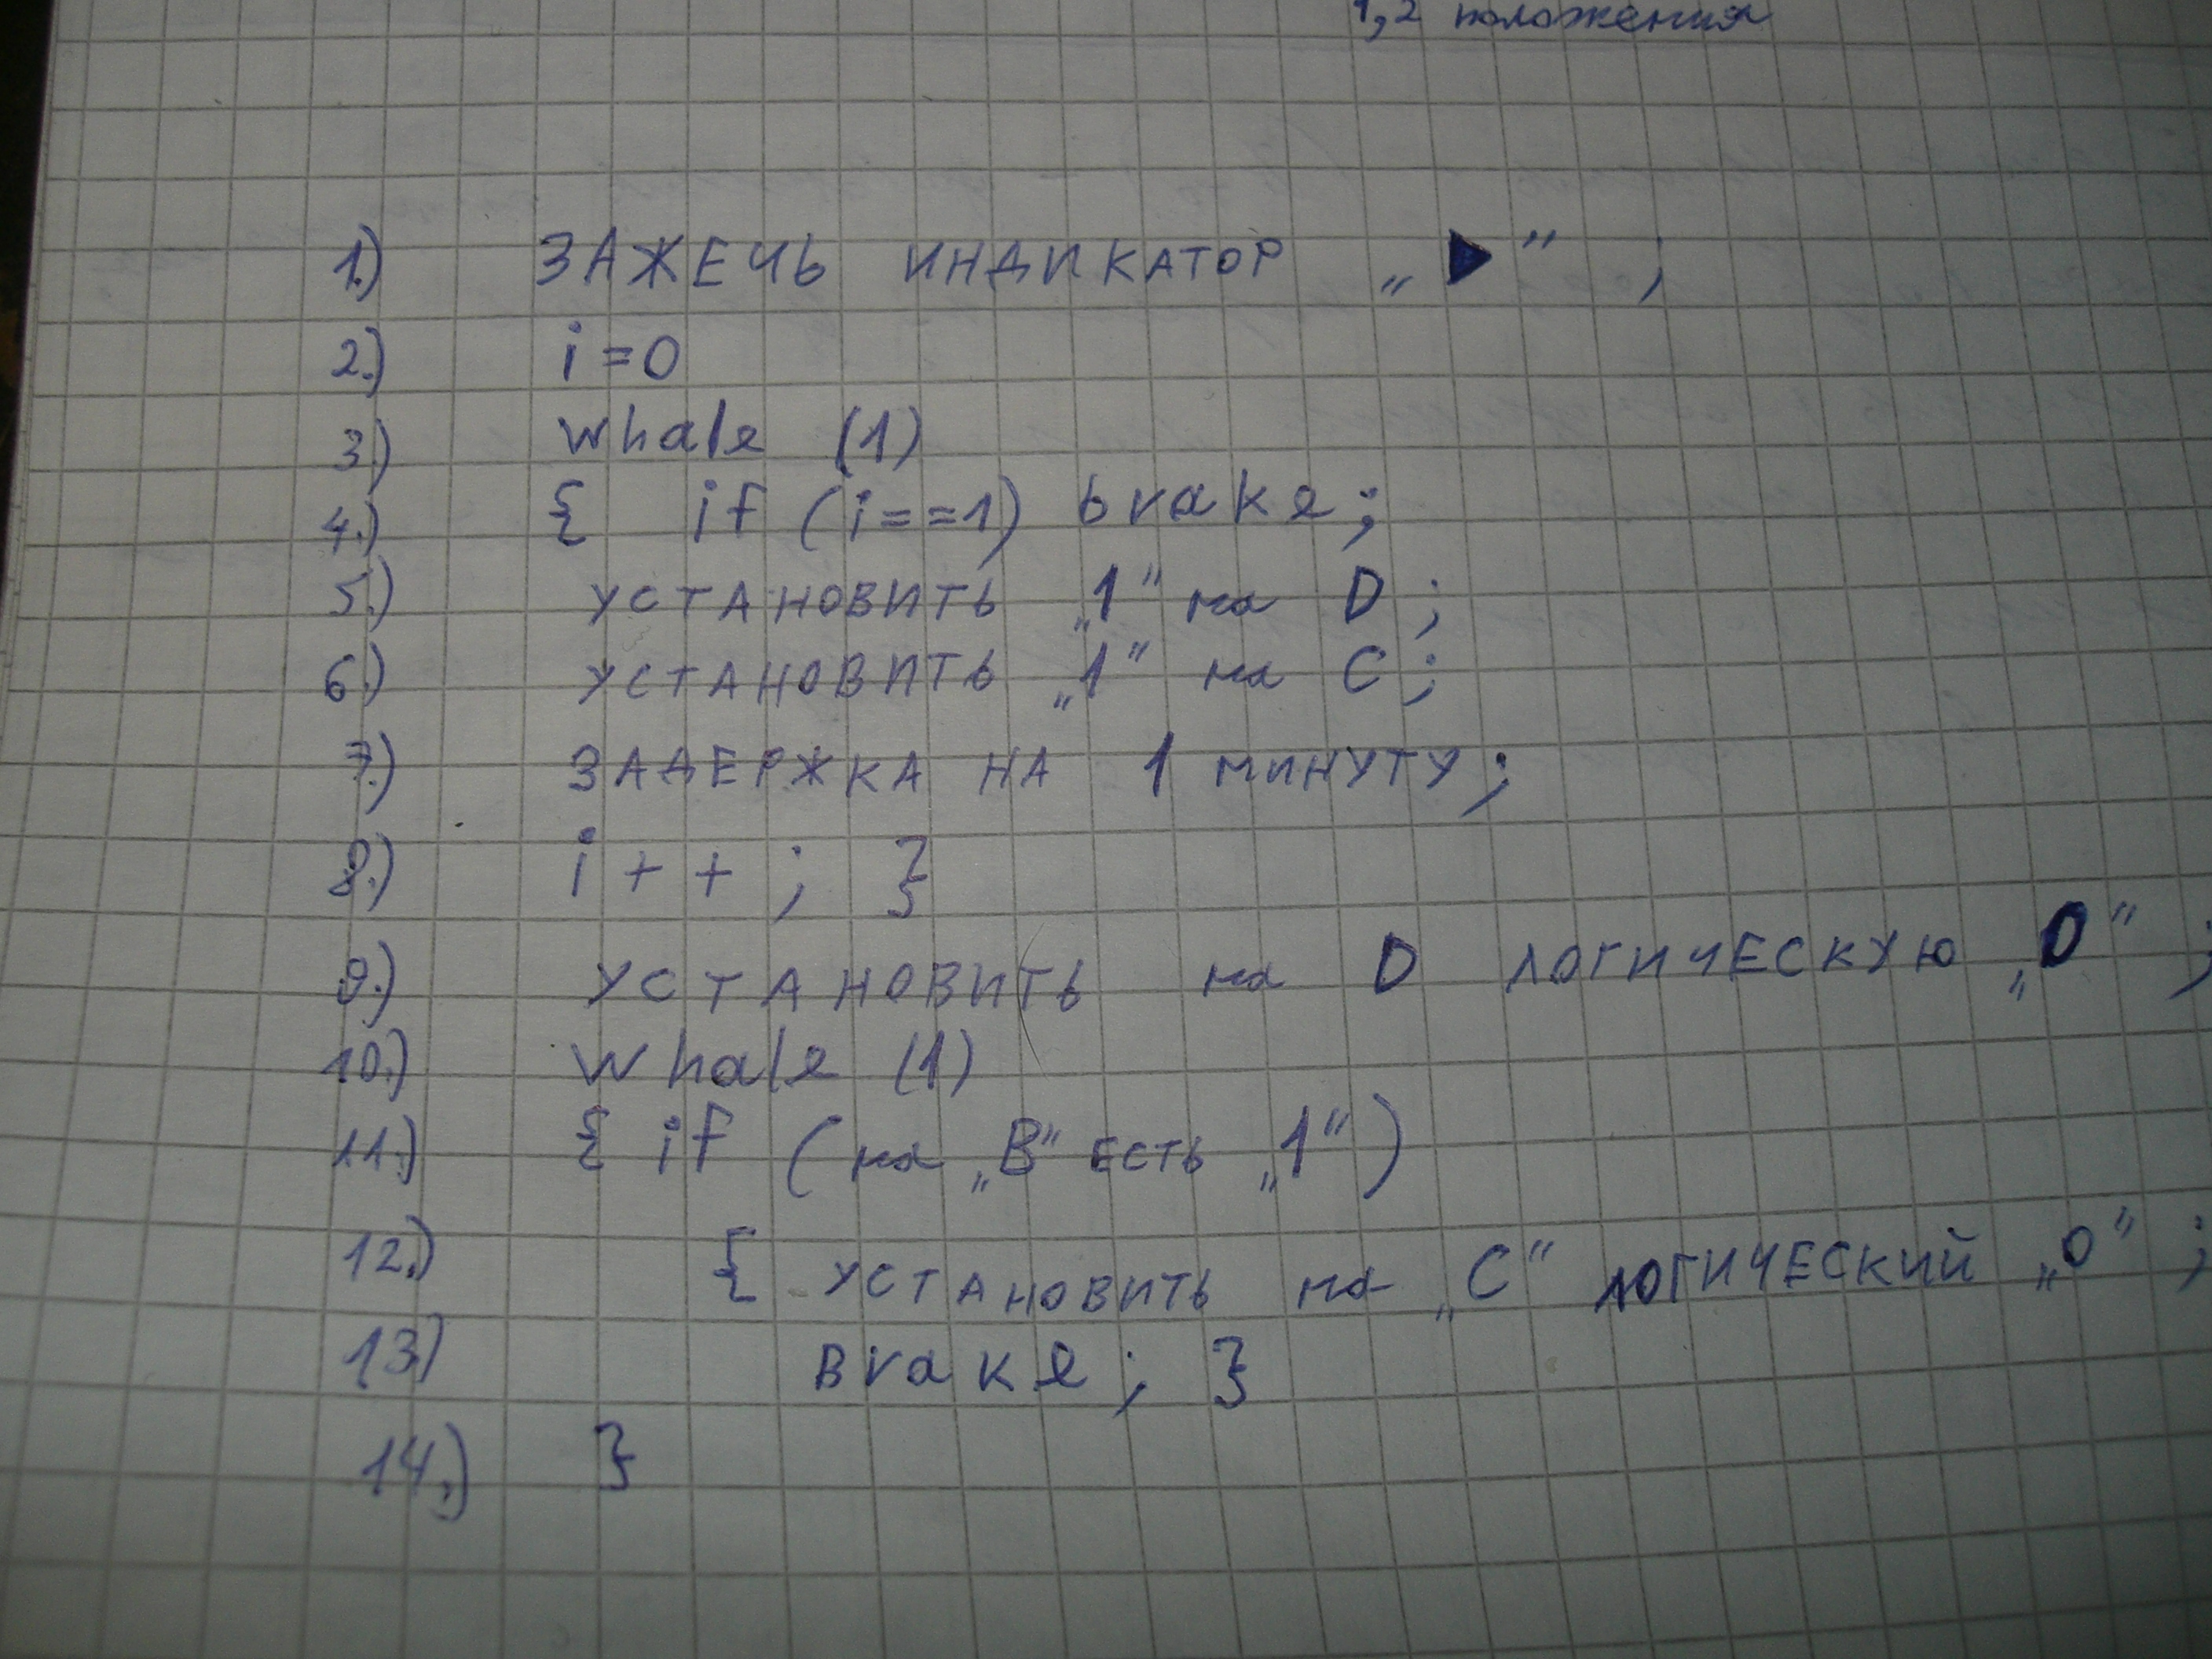 1,2 положения
1.) ЗАЖЕЧЬ ИНДИКАТОР „▶" ;
2.) i=0
3.) whale (1)
4.) { if (i==1) brake;
5.) УСТАНОВИТЬ „1" на D;
6.) УСТАНОВИТЬ „1" на C;
7.) ЗАДЕРЖКА НА 1 МИНУТУ;
8.) i++; }
9.) УСТАНОВИТЬ на D ЛОГИЧЕСКУЮ „0" ;
10.) whale (1)
11.) { if (на „В" ЕСТЬ „1")
12.) { УСТАНОВИТЬ на „С" ЛОГИЧЕСКИЙ „0" ;
13.) вrake; }
14.) }